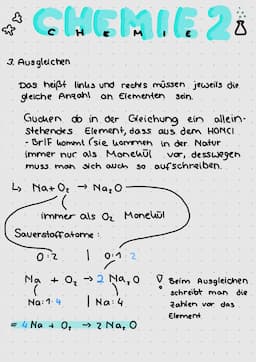 CHEMIE 2
CHEMIE
3. Ausgleichen
Das heißt links und rechts müssen jeweils die
gleiche Anzahl an Elementen sein.
Gucken ob in der Gleichung ein allein-
stehendes Element, dass aus dem HONCl
- BrIF kommt (sie kommen in der Natur
immer nur als Monekül vor, desswegen
muss man sich auch so aufschreiben.
↳ Na + O₂ → Na₂O
immer als O₂ Monekül
Sauerstoffatome:
O:2 | O:1·2
Na + O₂ → 2 Na₂O
Na:1·4 | Na:4
Beim Ausgleichen
schreibt man die
Zahlen vor das
Element
= 4 Na + O₂ → 2 Na₂O